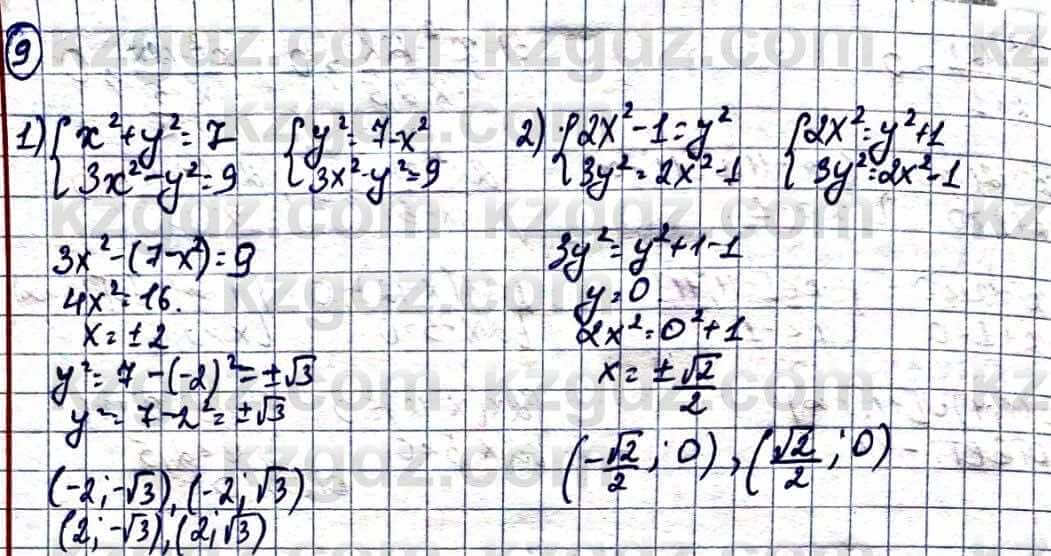 9
1) { x² + y² = 7
3x² - y² = 9
{ y² = 7 - x²
3x² - y² = 9
3x² - (7 - x²) = 9
4x² = 16.
x = ± 2
y² = 7 - (-2)² = ±√3
y = 7 - 2² = ±√3
(-2; -√3), (-2; √3)
(2; -√3), (2; √3)
2) { 2x² - 1 = y²
3y² = 2x² - 1
{ 2x² = y² + 1
3y² = 2x² - 1
3y² = y² + 1 - 1
y = 0.
2x² = 0² + 1
x = ± √2/2
(-√2/2; 0), (√2/2; 0)
kzgdz.com